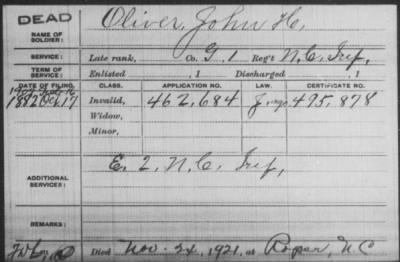 DEAD
NAME OF SOLDIER: Oliver, John H.
SERVICE: Late rank, Co. G, 1 Reg't N.C. Inf,
TERM OF SERVICE: Enlisted , 1 Discharged , 1
DATE OF FILING. CLASS. APPLICATION NO. LAW. CERTIFICATE NO.
1882 Oct. 17 Invalid, 462,684 495,878
Widow,
Minor,
ADDITIONAL SERVICES: E. 2, N.C. Inf,
REMARKS:
Died Nov. 24, 1921, at Roper, N.C.